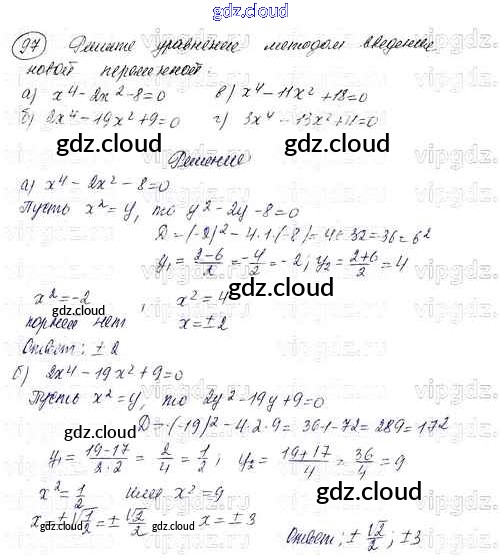 gdz.cloud
97 Решите уравнение методом введения
новой переменной.
а) x⁴ - 2x² - 8 = 0 в) x⁴ - 11x² + 18 = 0
б) 2x⁴ - 19x² + 9 = 0 г) 3x⁴ - 13x² + 11 = 0
gdz.cloud gdz.cloud
Решение
а) x⁴ - 2x² - 8 = 0
Пусть x² = y, то y² - 2y - 8 = 0
D = (-2)² - 4·1·(-8) = 4 + 32 = 36 = 6²
y₁ = (2-6)/2 = -4/2 = -2; y₂ = (2+6)/2 = 4
x² = -2, x² = 4
корней нет x = ± 2
Ответ: ± 2
б) 2x⁴ - 19x² + 9 = 0
Пусть x² = y, то 2y² - 19y + 9 = 0
D = (-19)² - 4·2·9 = 361 - 72 = 289 = 17²
y₁ = (19-17)/(2·2) = 2/4 = 1/2; y₂ = (19+17)/4 = 36/4 = 9
x² = 1/2 или x² = 9
x = ±√(1/2) = ± √2/2 x = ± 3
Ответ: ± √2/2; ± 3